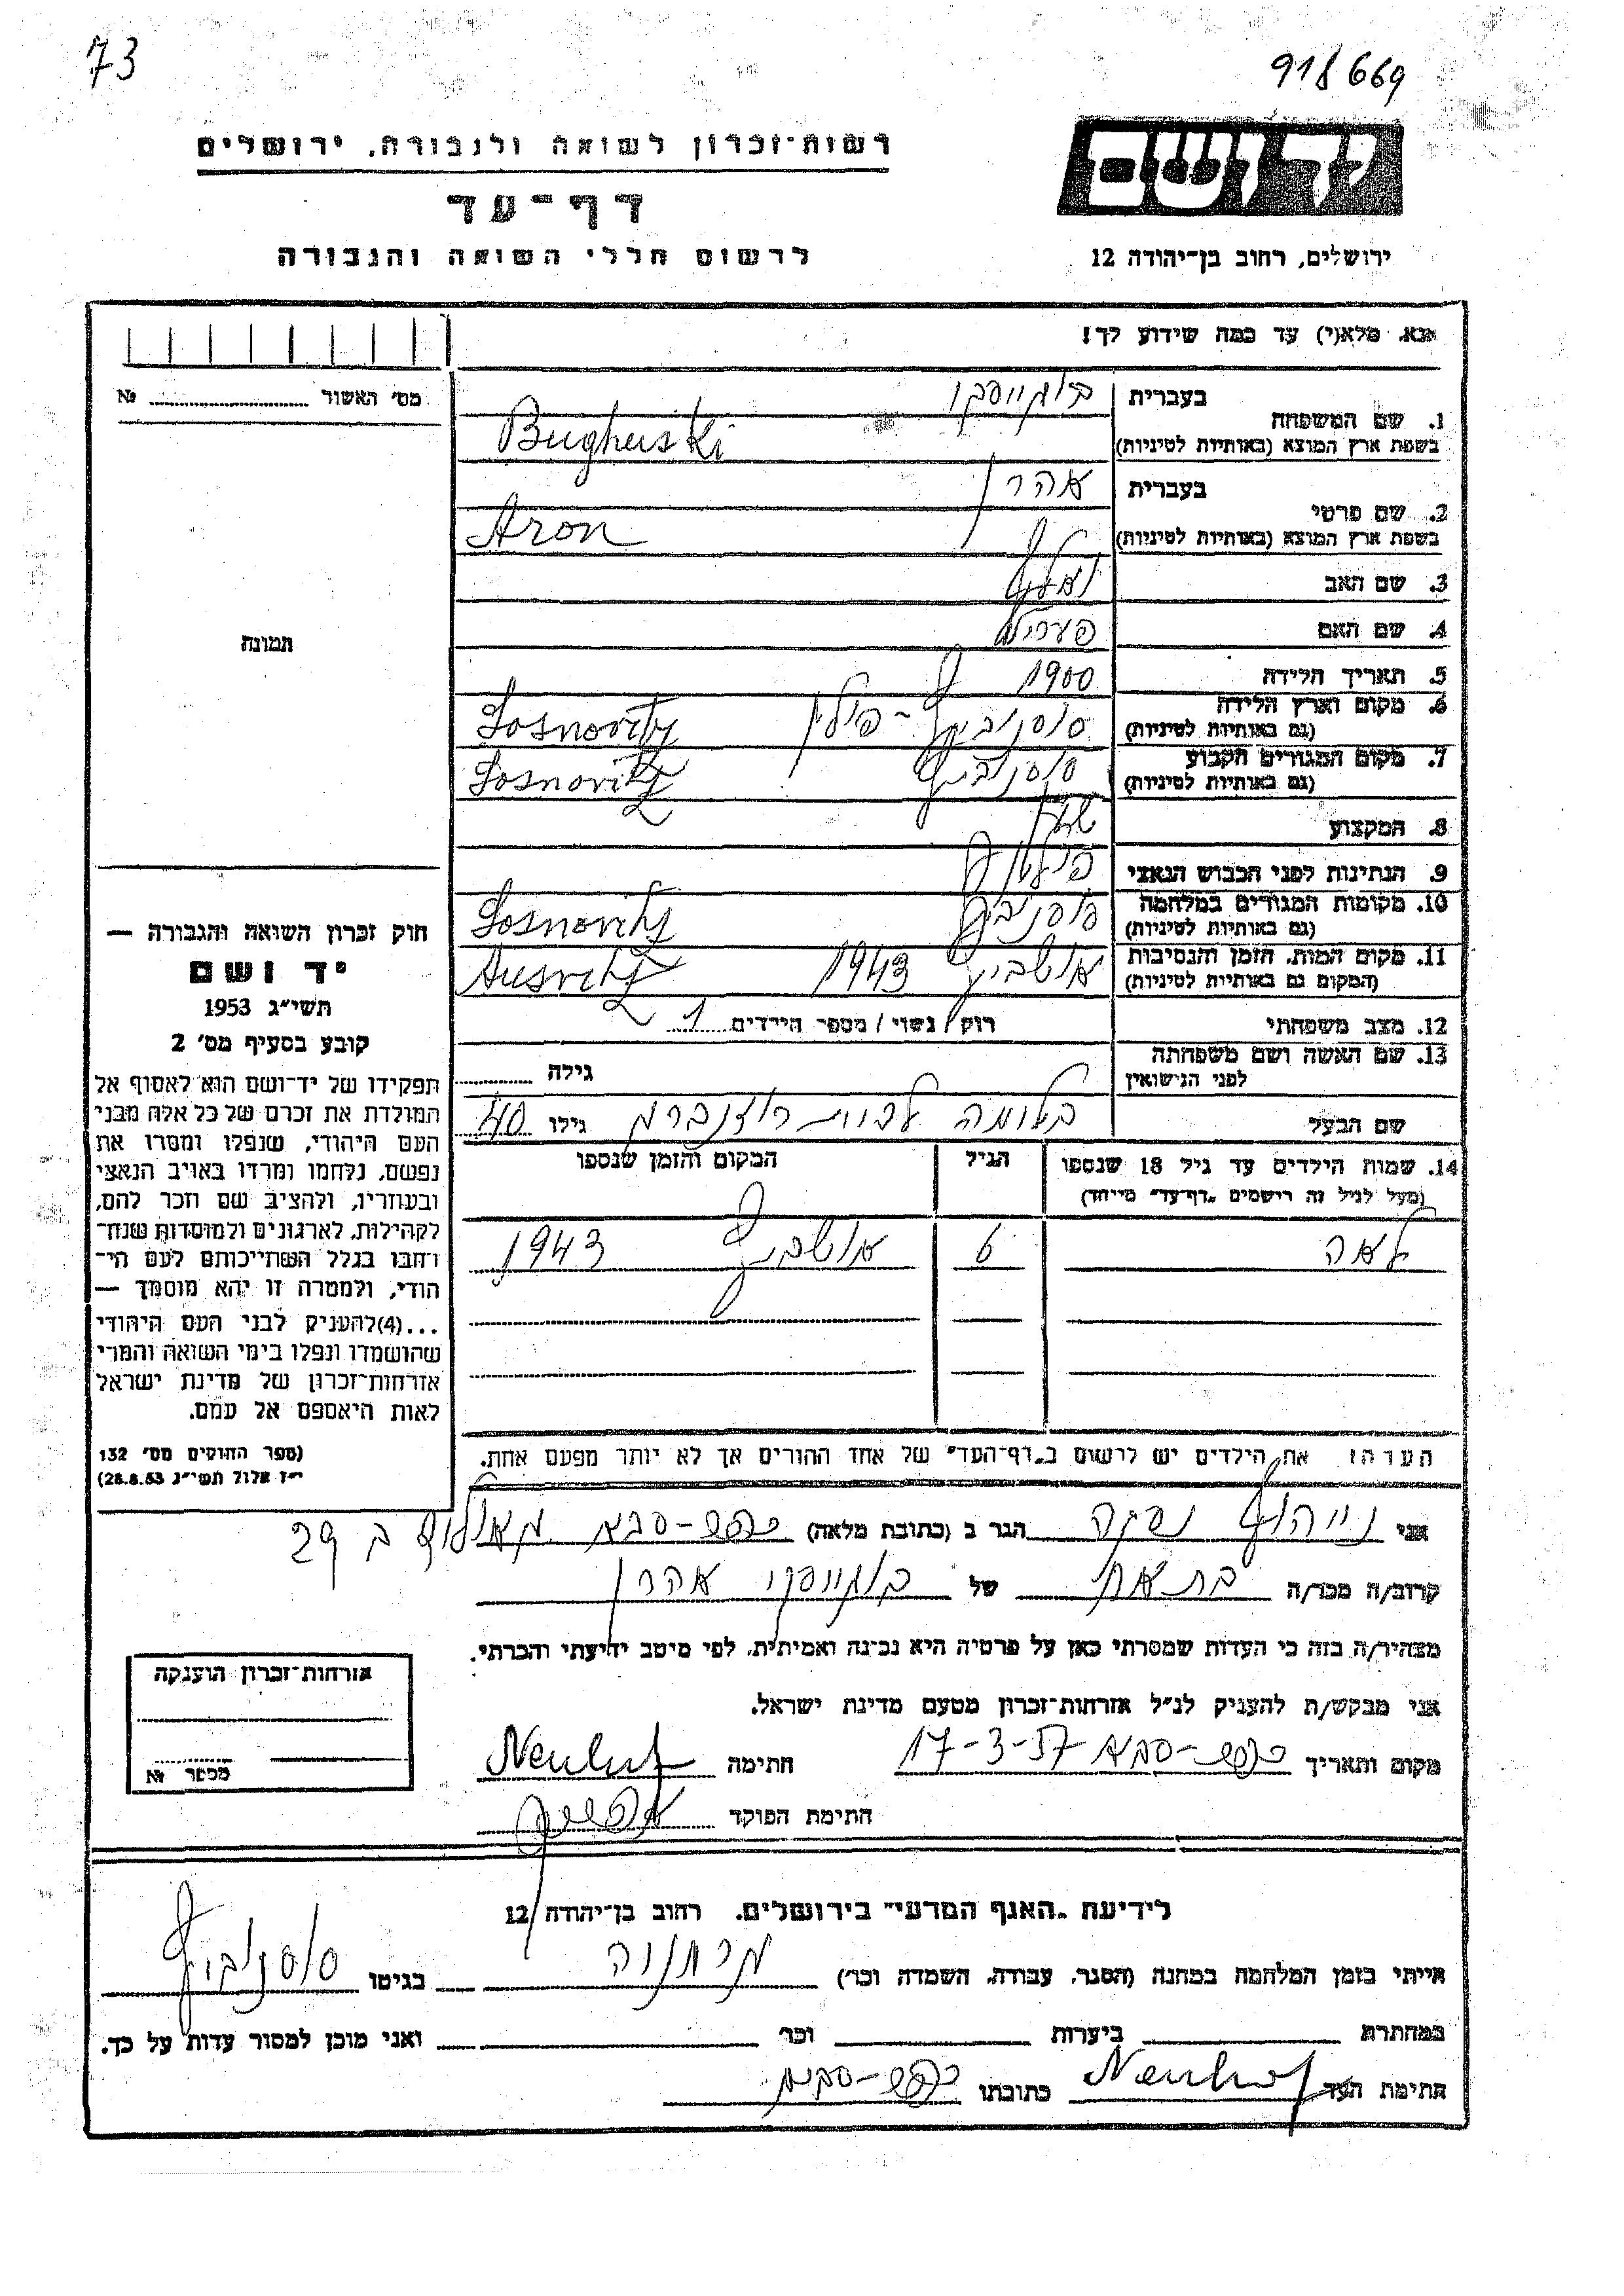 73
918669
רשות־זכרון לשואה ולגבורה, ירושלים
יד ושם
דף־עד
לרשום חללי השואה והגבורה
ירושלים, רחוב בן־יהודה 12
אנא, מלא(י) עד כמה שידוע לך!
מס' האשור № 
1. שם המשפחה בעברית
בשפת ארץ המוצא (באותיות לטיניות) Bughuski
2. שם פרטי בעברית אהרן
בשפת ארץ המוצא (באותיות לטיניות) Aron
3. שם האב
4. שם האם
5. תאריך הלידה 1900
6. מקום וארץ הלידה סוסנוביץ - פולין Sosnovitz
(גם באותיות לטיניות)
7. מקום המגורים הקבוע סוסנוביץ Sosnovitz
(גם באותיות לטיניות)
8. המקצוע
9. הנתינות לפני הכבוש הנאצי
10. מקומות המגורים במלחמה סוסנוביץ Sosnovitz
(גם באותיות לטיניות)
11. מקום המות, הזמן והנסיבות אושביץ 1943 Ausvitz
(המקום גם באותיות לטיניות)
12. מצב משפחתי רוק / נשוי / מספר הילדים 1
13. שם האשה ושם משפחתה
לפני הנישואין גילה
שם הבעל בלומה לבית רוזנברג גילו 40
14. שמות הילדים עד גיל 18 שנספו הגיל המקום והזמן שנספו
(מעל לגיל זה רישמים „דף־עד" מייחד)
לאה 6 אושביץ 1943
הערה: את הילדים יש לרשום ב„דף־העד" של אחד ההורים אך לא יותר מפעם אחת.
תמונה
חוק זכרון השואה והגבורה —
יד ושם
תשי"ג 1953
קובע בסעיף מס' 2
תפקידו של יד־ושם הוא לאסוף אל
המולדת את זכרם של כל אלה מבני
העם היהודי, שנפלו ומסרו את
נפשם, נלחמו ומרדו באויב הנאצי
ובעוזריו, ולהציב שם וזכר להם,
לקהילות, לארגונים ולמוסדות שנח־
רבו בגלל השתייכותם לעם הי־
הודי, ולמטרה זו יהא מוסמך —
...(4)להעניק לבני העם היהודי
שהושמדו ונפלו בימי השואה והמרי
אזרחות־זכרון של מדינת ישראל
לאות היאספם אל עמם.
(ספר החוקים מס' 132
י"ז אלול תשי"ג 28.8.53)
אני נייהוף הגר ב (כתובת מלאה) כפר-סבא 29
קרוב/ה מכר/ה בת אח של בוגויסקי אהרן
מצהיר/ה בזה כי העדות שמסרתי כאן על פרטיה היא נכונה ואמיתית, לפי מיטב ידיעתי והכרתי.
אני מבקש/ת להעניק לנ"ל אזרחות־זכרון מטעם מדינת ישראל.
מקום ותאריך כפר-סבא 17-3-57 חתימה Neuhof
חתימת הפוקד
אזרחות־זכרון הוענקה
מספר №
לידיעת „האגף המדעי" בירושלים, רחוב בן־יהודה 12
הייתי בזמן המלחמה במחנה (הסגר, עבודה, השמדה וכו') בגיטו סוסנוביץ
במחתרת ביערות וכו' ואני מוכן למסור עדות על כך.
חתימת העד Neuhof כתובתו כפר-סבא